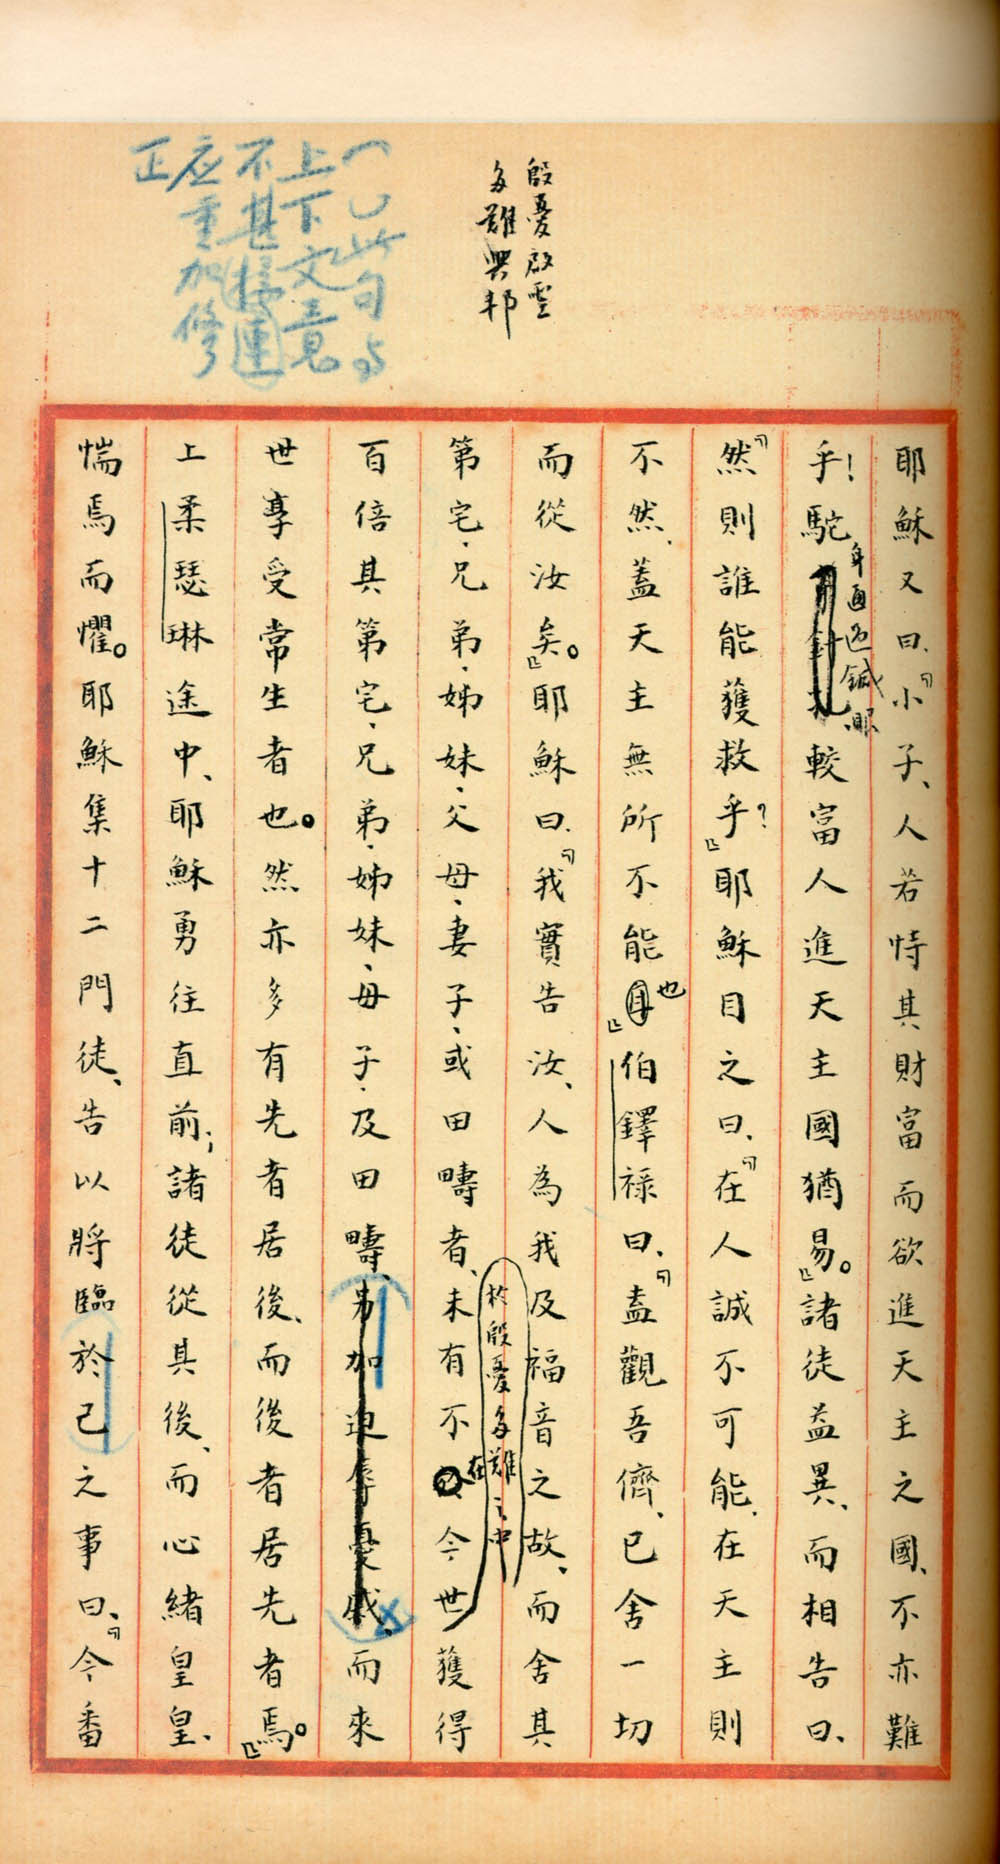 殷憂啟聖
多難興邦
︵︶此句與
上下文意
不甚接連
應重加修
正
耶穌又曰、「小子、人若恃其財富而欲進天主之國、不亦難
乎!駝身通過鍼眼較富人進天主國猶易。」諸徒益異、而相告曰、
「然則誰能獲救乎?」耶穌目之曰、「在人誠不可能、在天主則
不然、蓋天主無所不能也」伯鐸祿曰、「盍觀吾儕、已舍一切
而從汝矣。」耶穌曰、「我實告汝、人為我及福音之故、而舍其
於殷憂多難之中
第宅、兄弟、姊妹、父母、妻子、或田疇者、未有不在今世獲得
百倍其第宅、兄弟、姊妹、母子、及田疇、另加迫辱憂戚、而來
世享受常生者也。然亦多有先者居後、而後者居先者焉。」
上柔瑟琳途中、耶穌勇往直前;諸徒從其後、而心緒皇皇、
惴焉而懼。耶穌集十二門徒、告以將臨於己之事曰、「今番